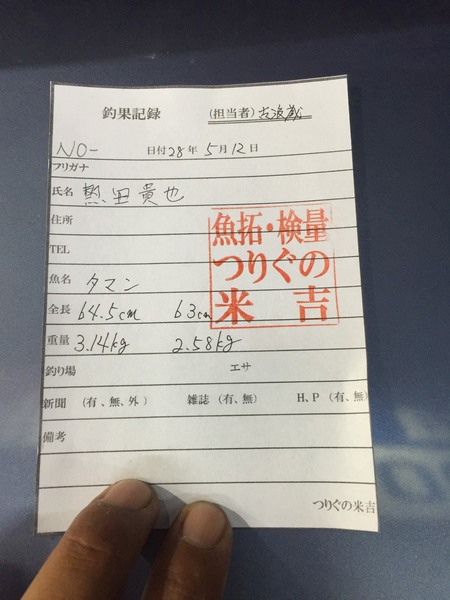 釣果記録 (担当者) 古波蔵
NO-
日付28年5月12日
フリガナ
氏名 熱田貴也
住所
TEL
魚拓・検量
つりぐの
米吉
魚名 タマン
全長 64.5cm 63cm
重量 3.14kg 2.58kg
釣り場 エサ
新聞 (有、無、外) 雑誌 (有、無) H、P (有、無)
備考
つりぐの米吉